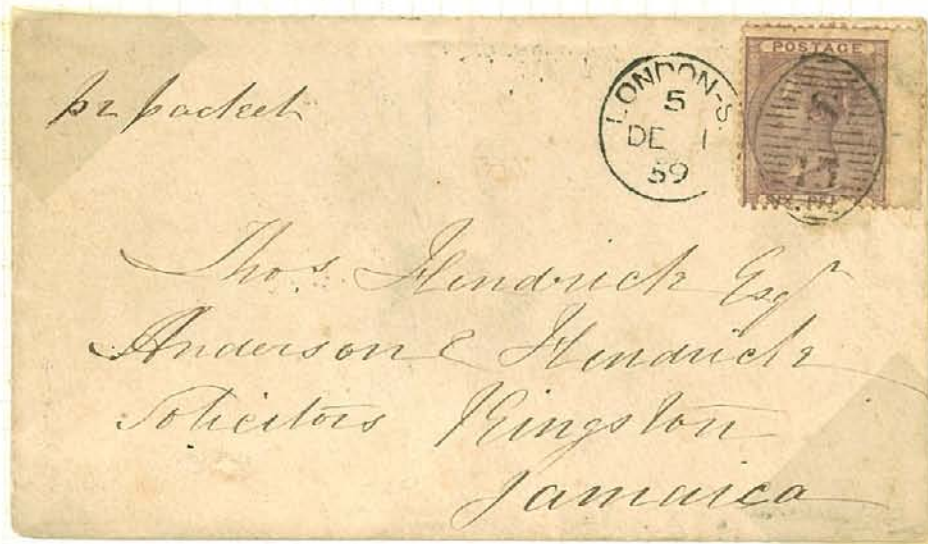 pr packet
LONDON-S.
5
DE 1
59
POSTAGE
S
13
SIX PE
Thos. Hendrick Esqr
Anderson & Hendrick
Solicitors Kingston
Jamaica